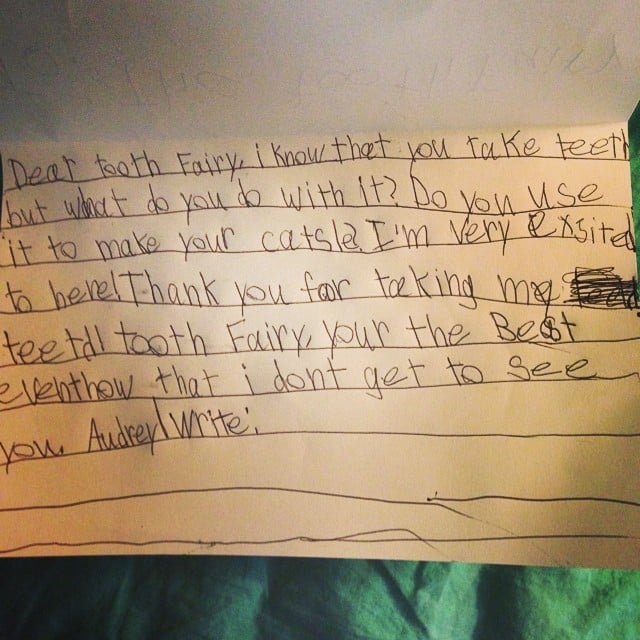 Dear tooth Fairy, i know that you take teeth
but what do you do with it? Do you use
it to make your catsle? I'm very exsited
to here! Thank you for taking my
teeth! tooth Fairy, your the Best
eventhow that i dont get to see
you. Audrey write: